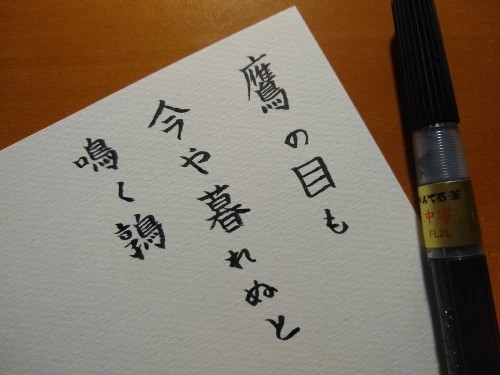 鷹の目も
今や暮れぬと
鳴く鶉
ぺんてる筆
中字
FL2L